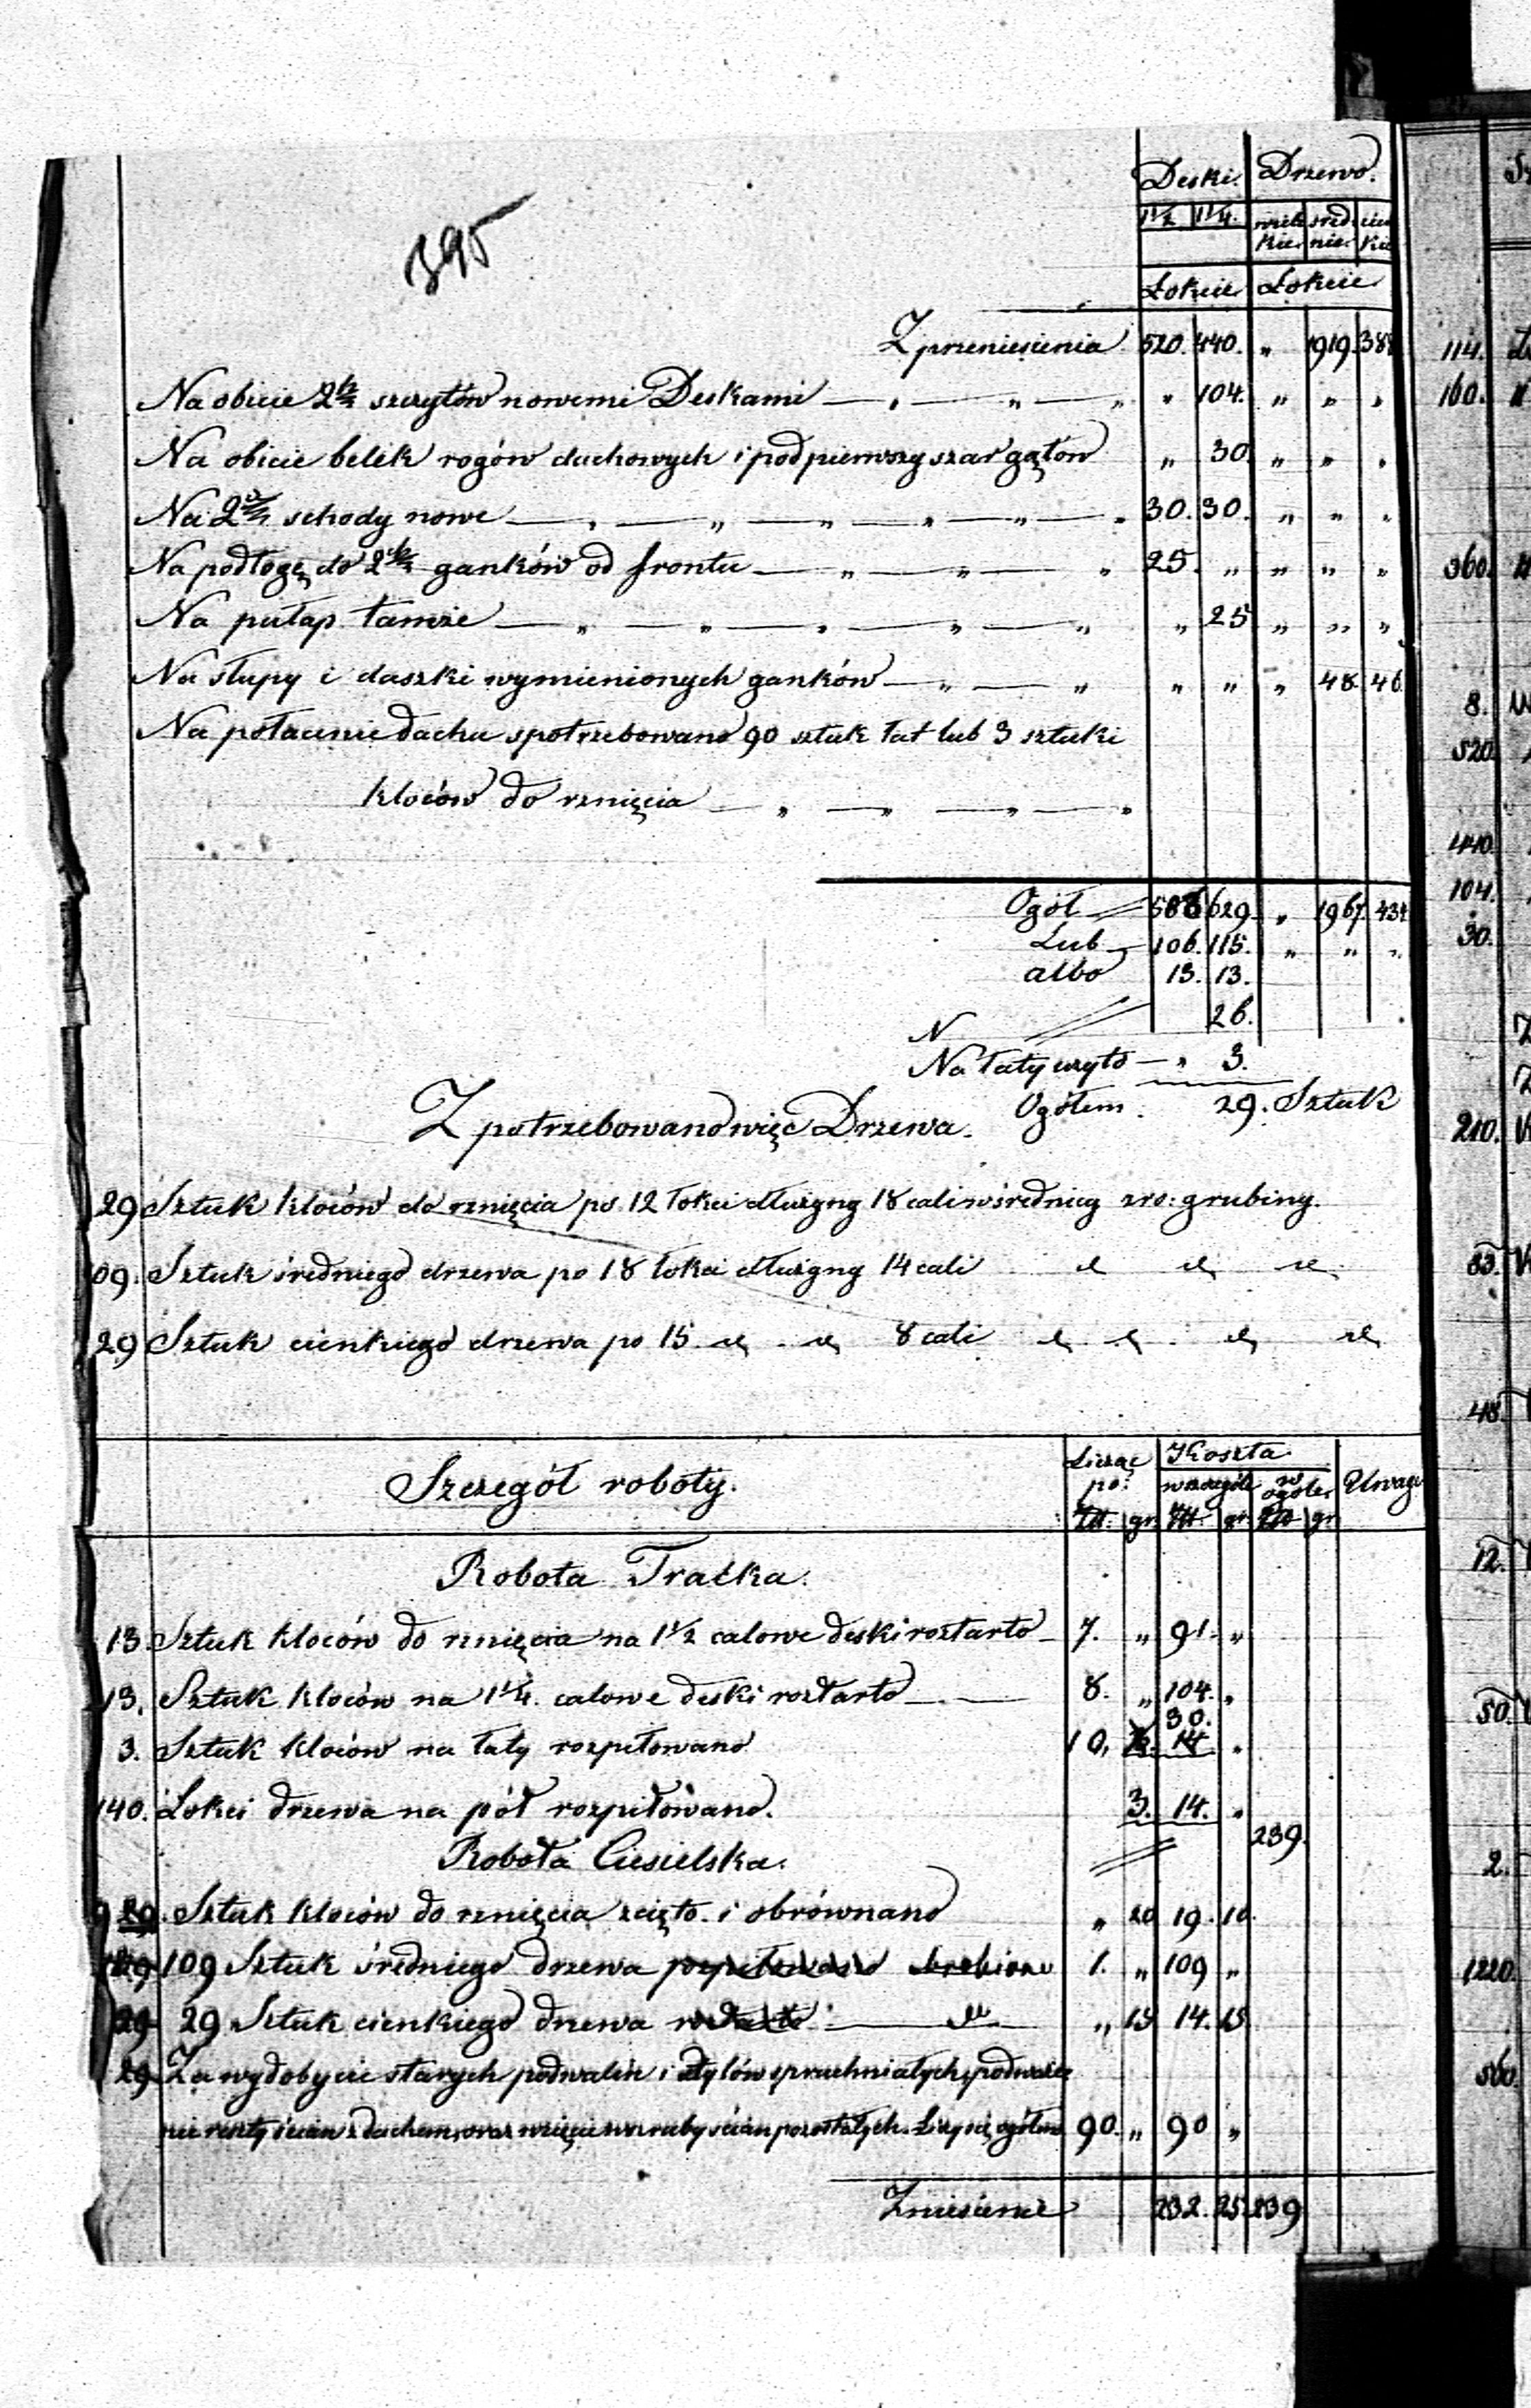 395
Deski. Drzewo.
1 1/2 1 1/4. wiel śred cien
kie nie kie
Łokcie Łokcie
Z przeniesienia 520. 440. " 1919. 388
Na obicie 2ch szczytów nowemi Deskami — " — " — " " 104. " " "
Na obicie belek rogów dachowych i pod pierwszy szar gątów " 30. " " "
Na 2ie schody nowe — " — " — " — " — " — " 30. 30. " " "
Na podłogę do 2ch ganków od frontu — " — " — " 25. " " " "
Na pułap tamże — " — " — " — " — " " 25 " " "
Na słupy i daszki wymienionych ganków — " — " " " " 48. 46.
Na połacenie dachu spotrzebowano 90 sztuk łat lub 3 sztuki
kloców do rznięcia — " — " — " — "
Ogół 588 629. " 1967. 434
Lub 106. 115. " " "
albo 13. 13.
N 26.
Na łaty użyto — " 3.
Ogółem. 29. Sztuk
Zpotrzebowano więc Drzewa.
29 Sztuk kloców do rznięcia po 12 łokci długng 18 cali w średnicy zro: grubiny.
09. Sztuk średniego drzewa po 18 łokci długng 14 cali d d d
29 Sztuk cienkiego drzewa po 15. d d 8 cali d d d d
Szczegół roboty. Licząc Koszta Uwagi
po: w szczególe w ogóle
Złt. gr. Złt. gr. Złt. gr
Robota Tracka.
13. Sztuk kloców do rznięcia na 1 1/2 calowe deski roztarto — 7. " 91. "
13. Sztuk kloców na 1 1/4. calowe deski roztarto — 8. " 104. "
30.
3. Sztuk kloców na łaty rozpiłowano 10, 14 "
140. Łokci drzewa na pół rozpiłowano. 3. 14. "
239.
Robota Ciesielska.
29. Sztuk kloców do rznięcia zcięto. i obrównano " 20 19. 10.
109 Sztuk średniego drzewa obrobiono 1. " 109 "
29 29 Sztuk cienkiego drzewa — d — " 15 14. 15
29 Za wydobycie starych podwalin i dylów spruchniałych, podważe
nie reszty ścian z dachem, oraz wzięcie wzruby ścian pozostałych. Liczy się ogółem 90. " 90 "
Zniesienie 232. 25 239